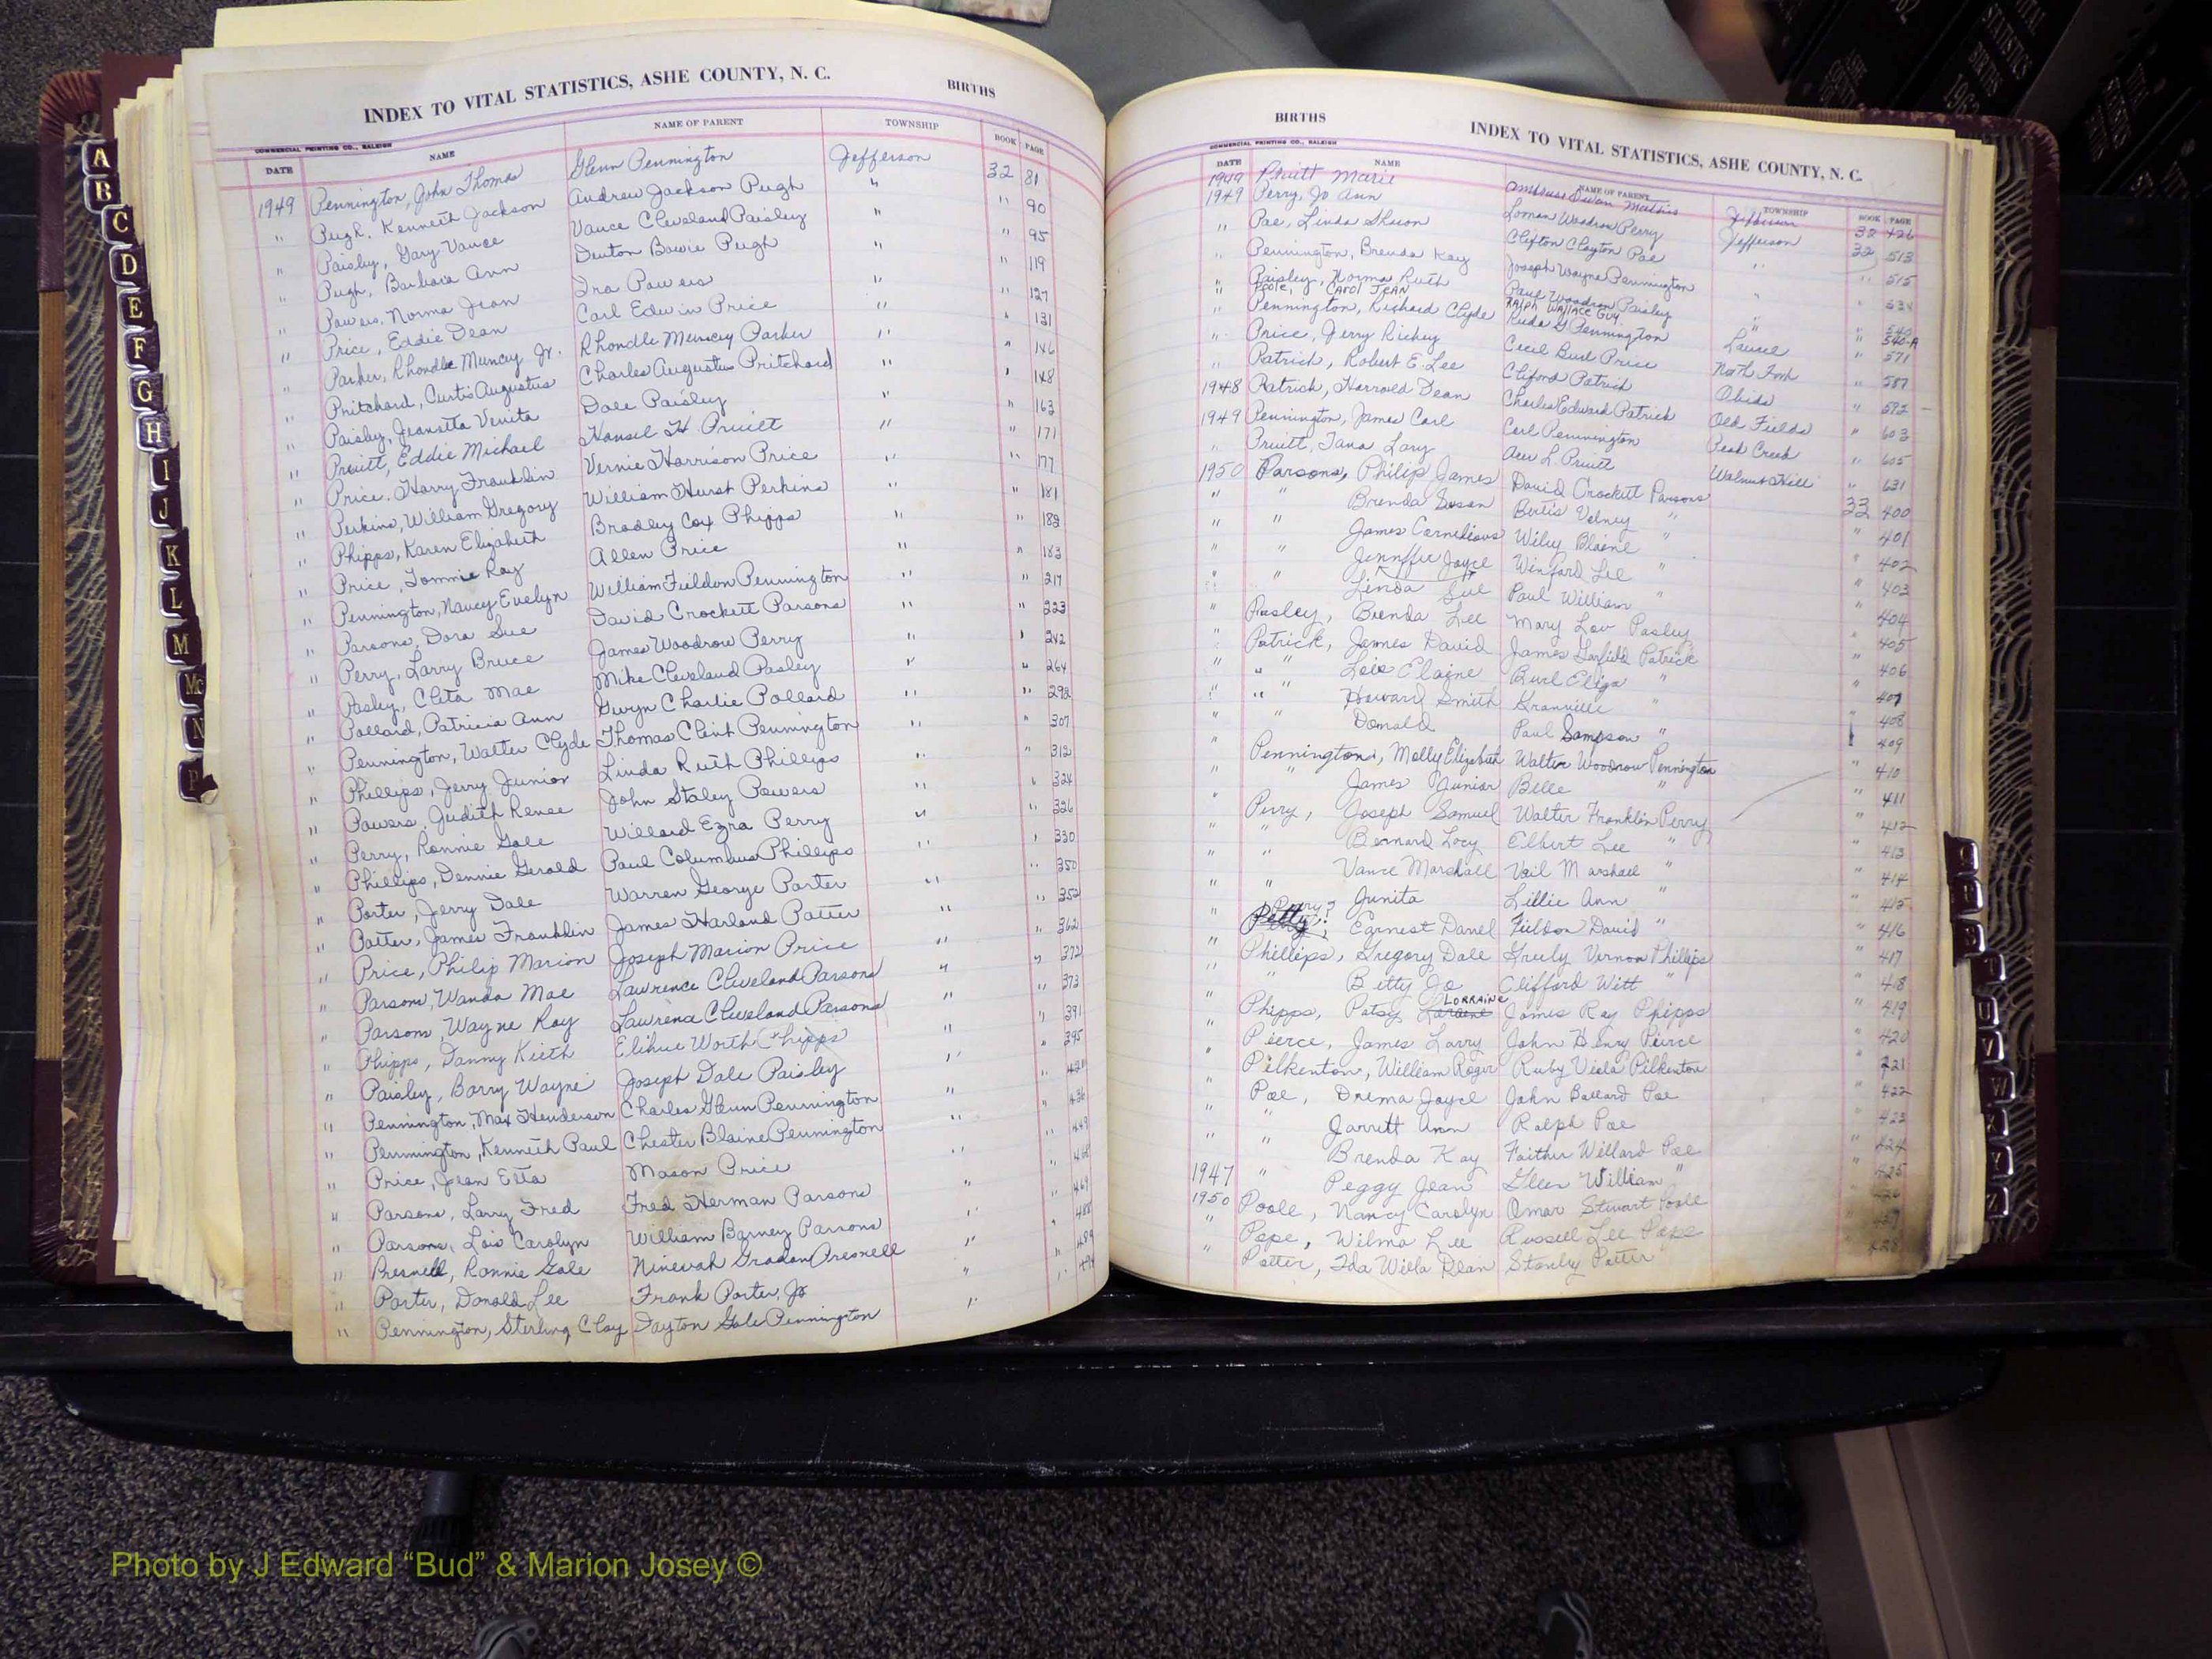 INDEX TO VITAL STATISTICS, ASHE COUNTY, N. C. BIRTHS
COMMERCIAL PRINTING CO., RALEIGH
DATE NAME NAME OF PARENT TOWNSHIP BOOK PAGE
1949 Pennington, John Thomas Glenn Pennington Jefferson 32 81
" Pugh, Kenneth Jackson Andrew Jackson Pugh " " 90
" Paisley, Gary Vance Vance Cleveland Paisley " " 95
" Pugh, Barbara Ann Denton Bowie Pugh " " 119
" Powers, Norma Jean Ira Powers " " 127
" Price, Eddie Dean Carl Edwin Price " " 131
" Parker, Rhondle Muncey Jr. Rhondle Muncey Parker " " 146
" Pritchard, Curtis Augustus Charles Augustus Pritchard " " 148
" Paisley, Jeanetta Venita Dale Paisley " " 163
" Pruitt, Eddie Michael Hansel H. Pruitt " " 171
" Price, Harry Franklin Vernie Harrison Price " " 177
" Perkins, William Gregory William Hurst Perkins " " 181
" Phipps, Karen Elizabeth Bradley Cox Phipps " " 182
" Price, Tommie Ray Allen Price " " 183
" Pennington, Nancy Evelyn William Fieldon Pennington " " 217
" Parsons, Dora Sue David Crockett Parsons " " 223
" Perry, Larry Bruce James Woodrow Perry " " 242
" Pasley, Cleta Mae Mike Cleveland Pasley " " 264
" Pollard, Patricia Ann Gwyn Charlie Pollard " " 292
" Pennington, Walter Clyde Thomas Clint Pennington " " 307
" Phillips, Jerry Junior Linda Ruth Phillips " " 312
" Powers, Judith Renee John Staley Powers " " 324
" Perry, Ronnie Gale Willard Ezra Perry " " 326
" Phillips, Dennie Gerald Paul Columbus Phillips " " 330
" Porter, Jerry Dale Warren George Porter " " 350
" Potter, James Franklin James Harland Potter " " 352
" Price, Philip Marion Joseph Marion Price " " 362
" Parsons, Wanda Mae Lawrence Cleveland Parsons " " 372
" Parsons, Wayne Ray Lawrence Cleveland Parsons " " 373
" Phipps, Danny Kieth Elihue Worth Phipps " " 391
" Paisley, Barry Wayne Joseph Dale Paisley " " 395
" Pennington, Max Henderson Charles Glenn Pennington "
" Pennington, Kenneth Paul Chester Blaine Pennington " " 436
" Price, Jean Etta Mason Price " " 449
" Parsons, Larry Fred Fred Herman Parsons "
" Parsons, Lois Carolyn William Barney Parsons " " 469
" Presnell, Ronnie Gale Ninevah Gradon Presnell " " 488
" Porter, Donald Lee Frank Porter, Jr " " 489
" Pennington, Sterling Clay Dayton Gale Pennington " " 494
BIRTHS INDEX TO VITAL STATISTICS, ASHE COUNTY, N. C.
COMMERCIAL PRINTING CO., RALEIGH
DATE NAME NAME OF PARENT TOWNSHIP BOOK PAGE
1949 Pruitt Marie Mathis Jefferson 32 426
1949 Perry, Jo Ann Loman Woodrow Perry Jefferson 32 513
" Poe, Linda Sharon Clifton Clayton Poe " " 515
" Pennington, Brenda Kay Joseph Wayne Pennington " " 534
" Paisley, Norma Ruth Paul Woodrow Paisley " " 540
" POOLE, CAROL JEAN RALPH WALLACE GUY 540-A
" Pennington, Richard Clyde Pennington Laurel " 571
" Price, Jerry Rickey Cecil Burl Price North Fork " 587
" Patrick, Robert E. Lee Cliford Patrick Obids " 592
1948 Patrick, Harrold Dean Charles Edward Patrick Old Fields " 603
1949 Pennington, James Carl Carl Pennington Peak Creek " 605
" Pruitt, Tana Lary L. Pruitt Walnut Hill " 631
1950 Parsons, Philip James David Crockett Parsons 33 400
" " Brenda Susan Bertis Velney " " 401
" " James Cornelious Wiley Blaine " " 402
" " Jennffer Joyce Winford Lee " " 403
" " Linda Sue Paul William " " 404
" Pasley, Brenda Lee Mary Lou Pasley " 405
" Patrick, James David James Garfield Patrick " 406
" " Lois Elaine Burl Eliga " " 407
" " Howard Smith Granville " " 408
" " Donald Paul Sampson " " 409
" Pennington, Molly Elizabeth Walter Woodrow Pennington " 410
" " James Junior Belle " " 411
" Perry, Joseph Samuel Walter Franklin Perry " 412
" " Bernard Locy Elbert Lee " " 413
" " Vance Marshall Vail Marshall " " 414
" " Junita Lillie Ann " " 415
" Perry? Petty, Earnest Danel Fieldon David " " 416
" Phillips, Gregory Dale Greely Vernon Phillips " 417
" " Betty Jo Clifford Witt " " 418
" Phipps, Patsy Loraine LORRAINE James Ray Phipps " 419
" Pierce, James Larry John Henry Pierce " 420
" Pilkenton, William Roger Ruby Viola Pilkenton " 421
" Poe, Drema Joyce John Ballard Poe " 422
" " Jarrett Ann Ralph Poe " 423
" " Brenda Kay Faither Willard Poe " 424
1947 " Peggy Jean Glen William " " 425
1950 Poole, Nancy Carolyn Omar Stewart Poole " 426
" Pope, Wilma Lee Russell Lee Pope " 427
" Potter, Ida Willa Dean Stanly Potter " 428
A
B
C
D
E
F
G
H
I
J
K
L
M
Mc
N
P
T
U
V
W
X
Y
Z
VITAL STATISTICS BIRTHS
Photo by J Edward “Bud” & Marion Josey ©